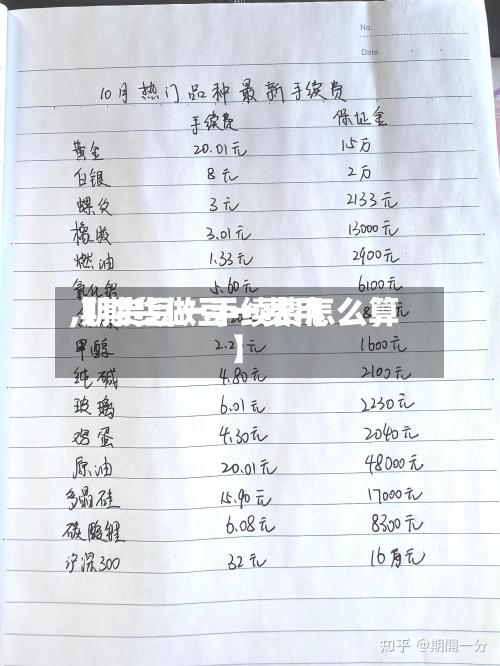 No.
Date
10月热门品种最新手续费
手续费 保证金
黄金 20.01元 15万
白银 8元 2万
螺纹 3元 2133元
橡胶 3.01元 13000元
燃油 1.33元 2900元
氧化铝 5.60元 6100元
怎么算
】
甲醇 2.2 元 1600元
纯碱 4.80元 2100元
玻璃 6.01元 2230元
鸡蛋 4.30元 2040元
原油 20.01元 48000元
多晶硅 15.90元 17000元
碳酸锂 6.08元 8300元
沪深300 32元 16万元
知乎 @期開一分